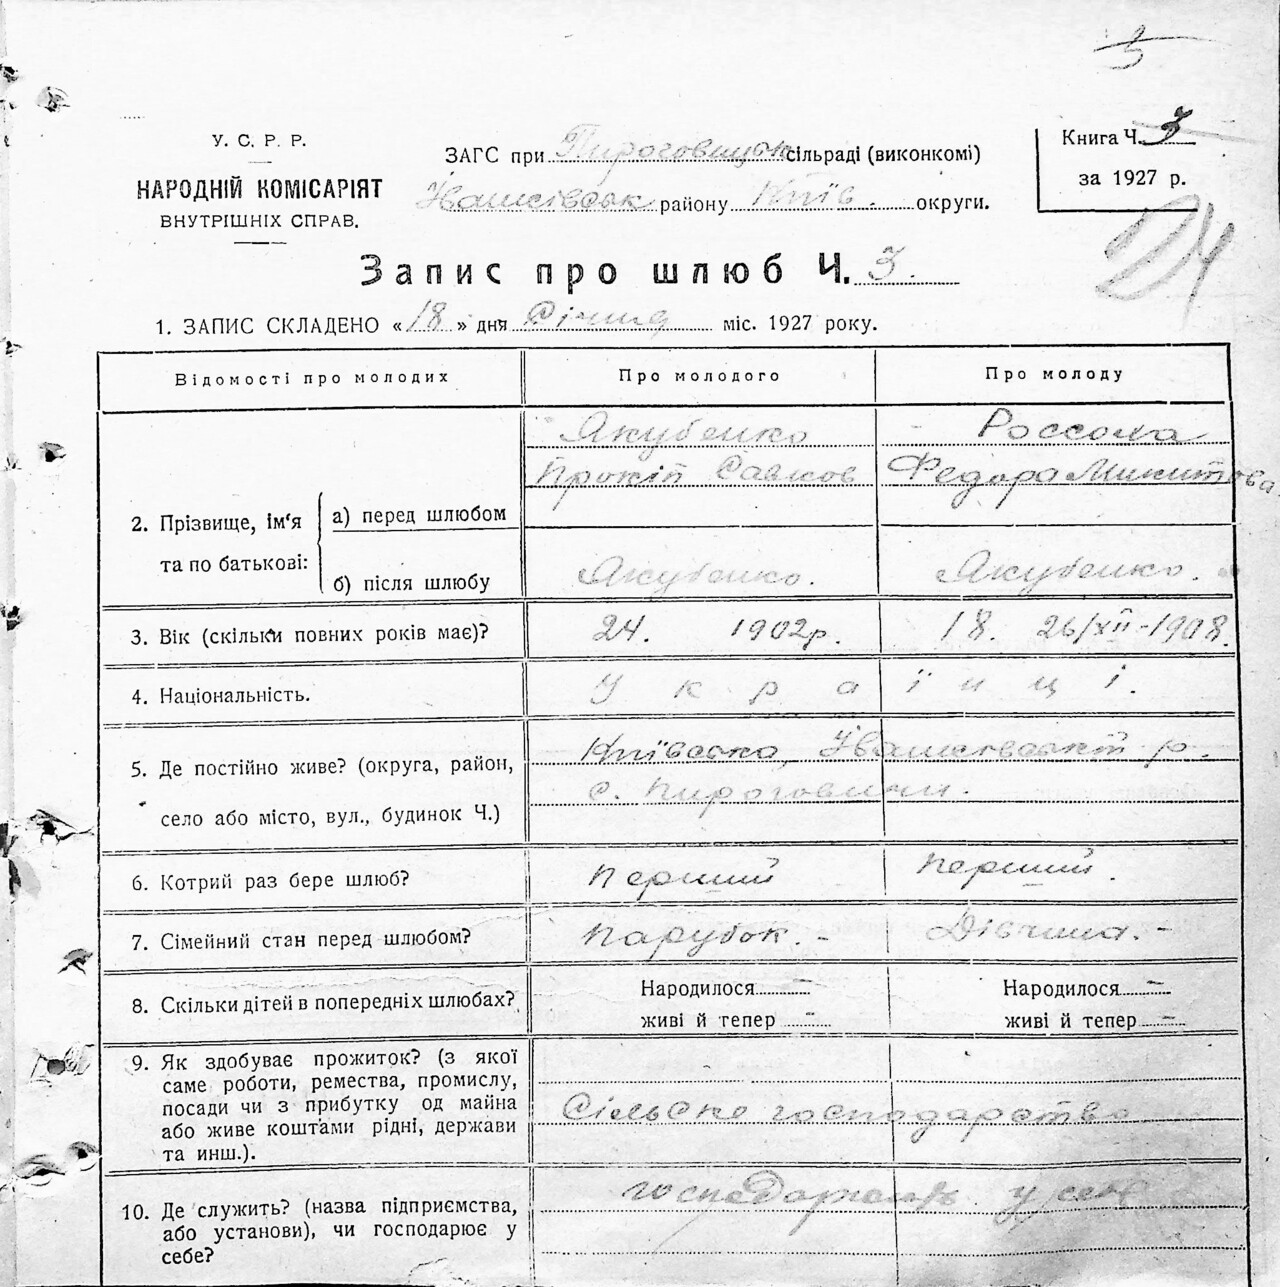 5
У. С. Р. Р.
НАРОДНІЙ КОМІСАРІЯТ
ВНУТРІШНІХ СПРАВ.
ЗАГС при Пироговицьк сільраді (виконкомі)
району Київ. округи.
Книга Ч. 3
за 1927 р.
24
Запис про шлюб Ч. 3.
1. ЗАПИС СКЛАДЕНО «18» дня Січня міс. 1927 року.
Відомості про молодих Про молодого Про молоду
Якубенко Россоха
Прокіп Савков Федора Микитова
2. Прізвище, ім'я та по батькові: а) перед шлюбом
б) після шлюбу Якубенко. Якубенко.
3. Вік (скільки повних років має)? 24. 1902р. 18. 26/XII-1908.
4. Національність. Українці.
5. Де постійно живе? (округа, район, село або місто, вул., будинок Ч.) Київська, р.
с. Пироговичи.
6. Котрий раз бере шлюб? Перший Перший.
7. Сімейний стан перед шлюбом? Парубок. - Дівчина. -
8. Скільки дітей в попередніх шлюбах? Народилося - Народилося -
живі й тепер - живі й тепер -
9. Як здобуває прожиток? (з якої
саме роботи, ремества, промислу,
посади чи з прибутку од майна
або живе коштами рідні, держави
та инш.). Сільске господарство
10. Де служить? (назва підприємства,
або установи), чи господарює у
себе? у себе